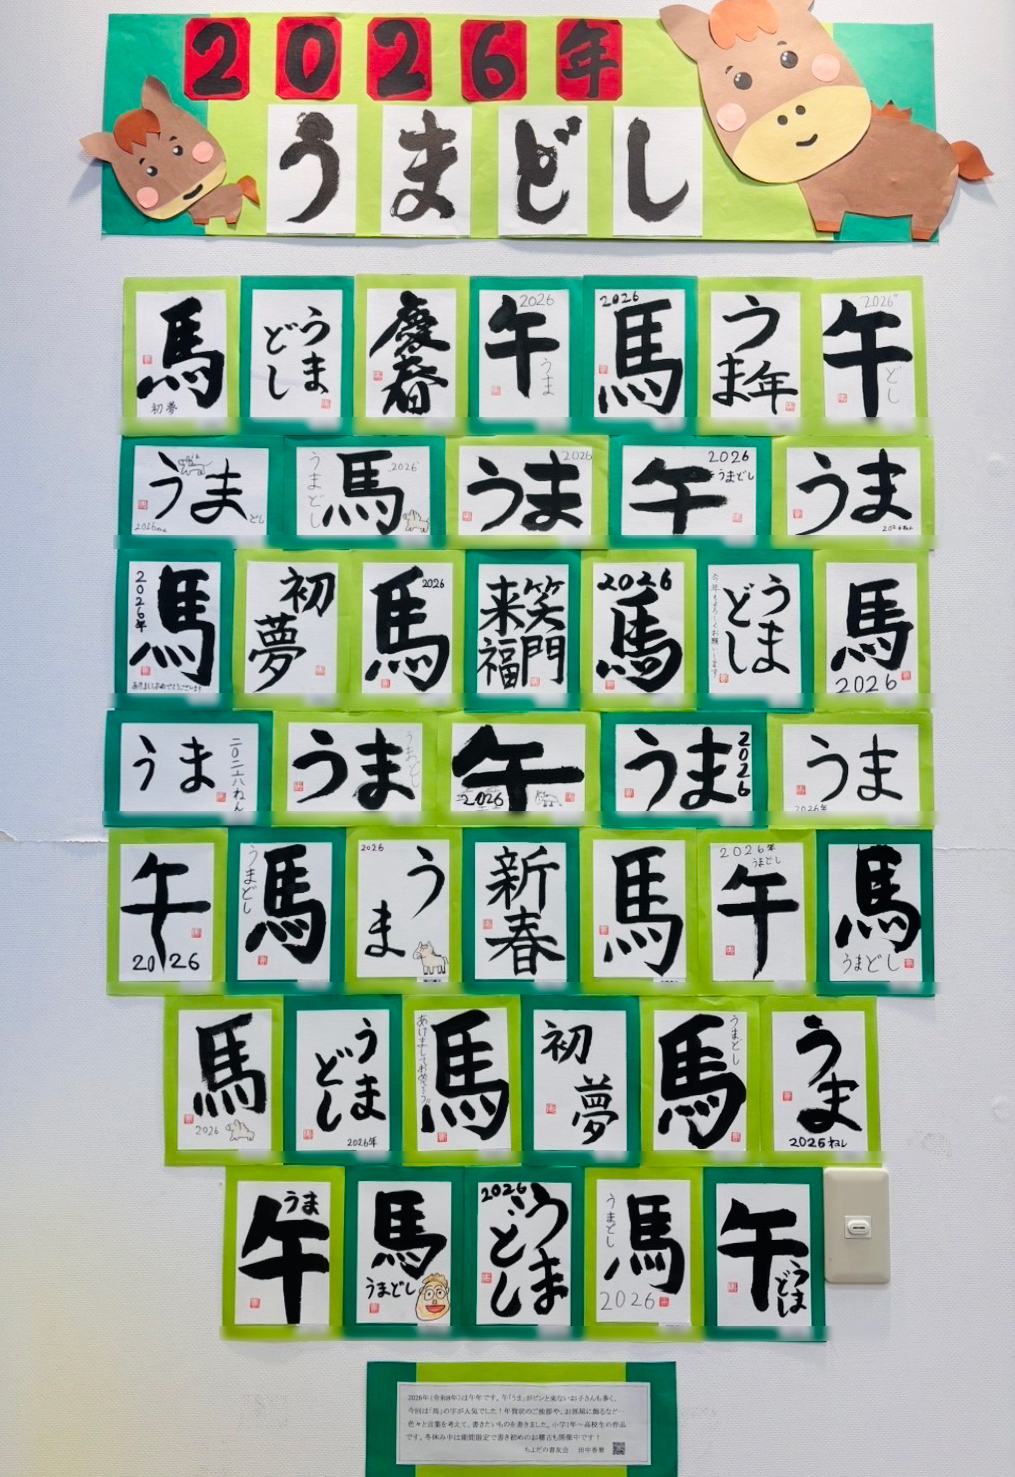 2026年
うまどし
馬
初夢
うま
どし
慶春
2026
午
うま
2026
馬
う
ま年
2026
午
どし
うま
どし
うまどし
馬
2026
2026
うま
2026
午
うまどし
うま
2026年
馬
あけましておめでとうございます
初
夢
2026
馬
笑門
来福
2026
馬
うま
どし
今年もよろしくお願いします
馬
2026
うま
二〇二六ねん
うま
うまどし
午
2026
うま
2026
うま
2026年
午
2026
うまどし
馬
2026
う
ま
新春
馬
2026年
うまどし
午
馬
うまどし
馬
2026
うま
どし
2026年
あけましておめでとう!!
馬
初
夢
うまどし
馬
うま
うま
午
馬
うまどし
2026
うま
どし
うまどし
馬
2026
午
うま
どし
2026年(令和8年)は午年です。午「うま」がピンと来ないお子さんも多く、
今回は「馬」の字が人気でした!年賀状のご挨拶や、お部屋に飾るなど…
色々と言葉を考えて、書きたいものを書きました。小学1年〜高校生の作品
です。冬休み中は期間限定で書き初めのお稽古も開催中です!
ちよだの書友会